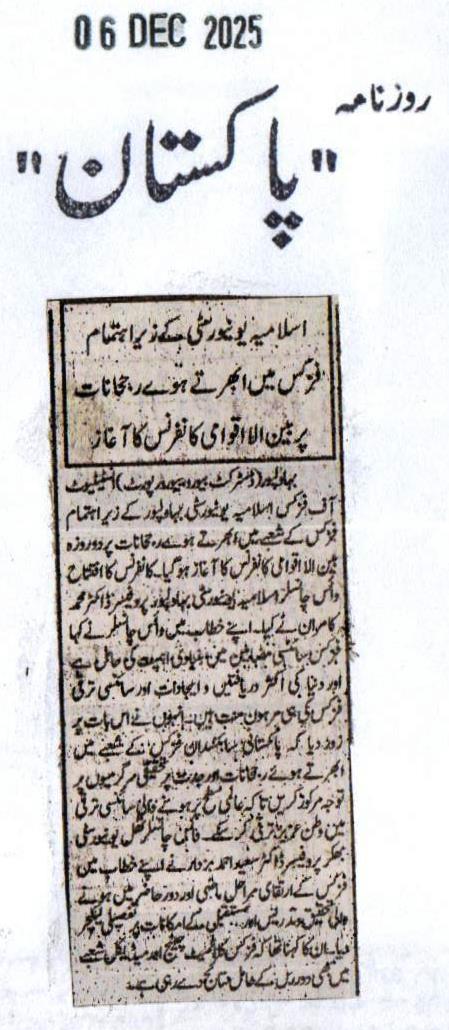 06 DEC 2025
روزنامہ
"پاکستان"
اسلامیہ یونیورسٹی کے زیر اہتمام
فزکس میں ابھرتے ہوے رجحانات
پر بین الااقوامی کانفرنس کا آغاز
بہاولپور (ڈسٹرکٹ بیورو رپورٹ) انسٹیٹیوٹ
آف فزکس اسلامیہ یونیورسٹی بہاولپور کے زیر اہتمام
فزکس کے شعبے میں ابھرتے ہوے رجحانات پر دو روزہ
بین الااقوامی کانفرنس کا آغاز ہوگیا۔ کانفرنس کا افتتاح
وائس چانسلر اسلامیہ یونیورسٹی بہاولپور پروفیسر ڈاکٹر محمد
کامران نے کیا۔ اپنے خطاب میں وائس چانسلر نے کہا
فزکس سائنسی مضامین میں بنیادی اہمیت کی حامل ہے
اور دنیا کی اکثر دریافتیں و ایجادات اور سائنسی ترقی
فزکس کی ہی مرہون منت ہیں۔ انہوں نے اس بات پر
زور دیا کہ پاکستانی سائنسدان فزکس کے شعبے میں
ابھرتے ہوئے رجحانات اور جدت پر تحقیقی سرگرمیوں پر
توجہ مرکوز کریں تاکہ عالمی سطح پر ہونے والی سائنسی ترقی
میں وطن عزیز ترقی کر سکے۔ وائس چانسلر تھل یونیورسٹی
بھکر پروفیسر ڈاکٹر سعید احمد بزدار نے اپنے خطاب میں
فزکس کے ارتقائی مراحل ماضی اور دور حاضر میں ہونے
والی تحقیق وتدریس اور مستقبل کے امکانات پر تفصیلی لیکچر
دیا۔ ان کا کہنا تھا کہ فزکس کلائمیٹ چینج اور میڈیکل شعبے
میں بھی دور رس کے حامل نتائج دے رہی ہے۔